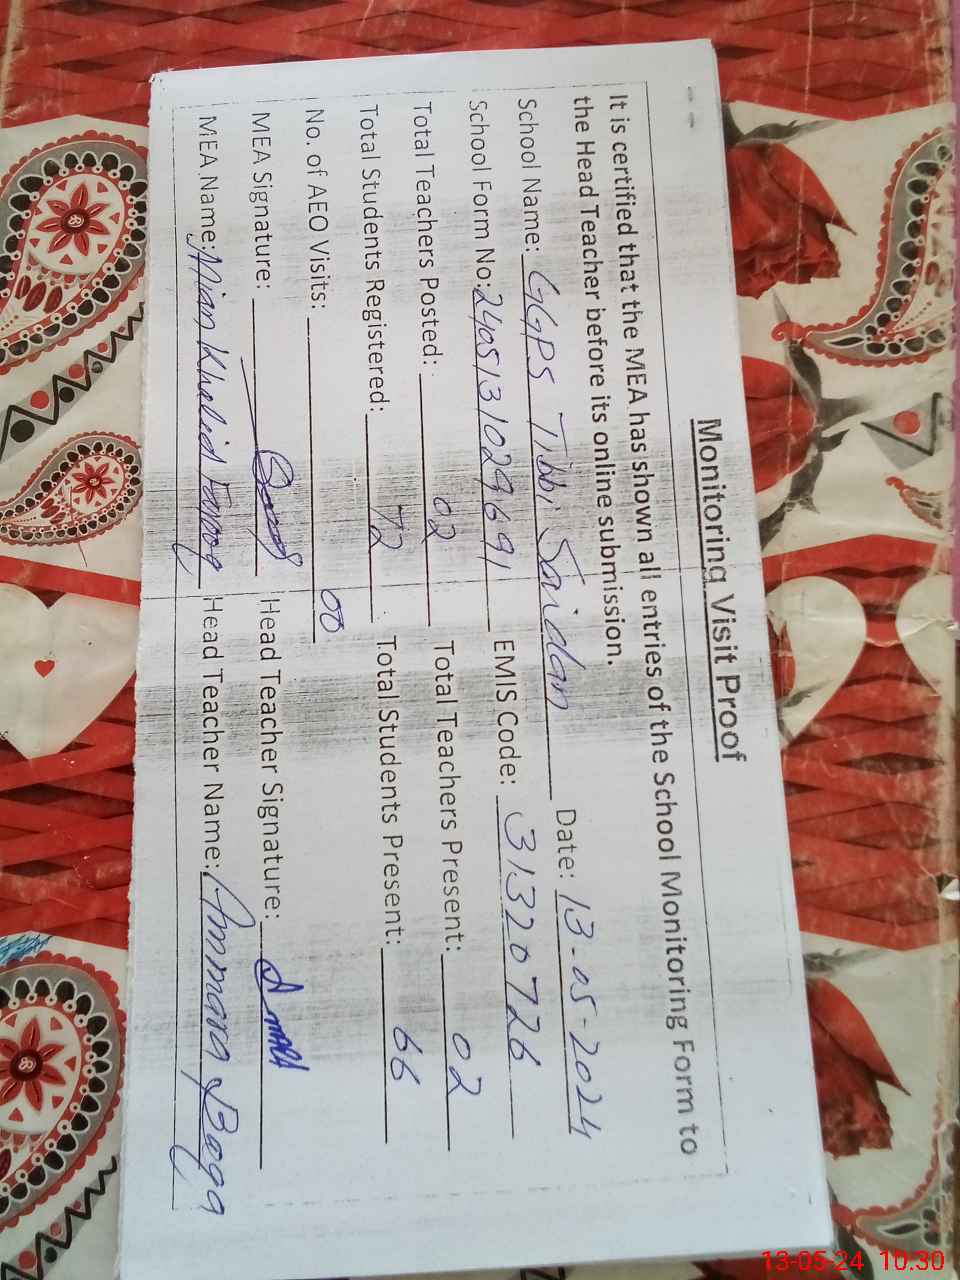 Monitoring Visit Proof
It is certified that the MEA has shown all entries of the School Monitoring Form to
the Head Teacher before its online submission.
School Name: GGPS Tibbi Saidan Date: 13-05-2024
School Form No: 2405131029691 EMIS Code: 31320726
Total Teachers Posted: 02 Total Teachers Present: 02
Total Students Registered: 72 Total Students Present: 66
No. of AEO Visits: 00
MEA Signature: Head Teacher Signature:
MEA Name: Mian Khalid Farooq Head Teacher Name: Ammara
13-05-24 10:30